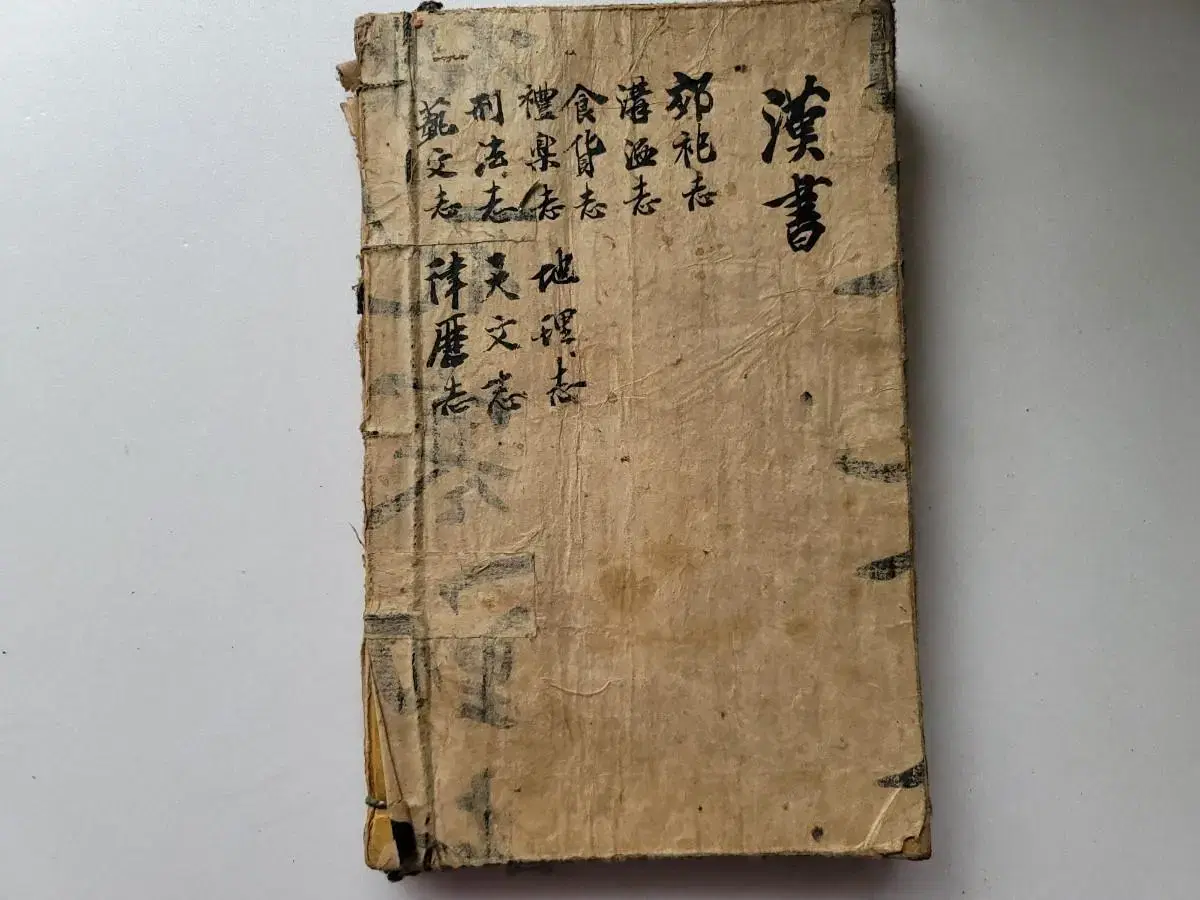 漢書
郊祀志
溝洫志
食貨志
禮樂志
刑法志
藝文志
地理志
天文志
律歷志